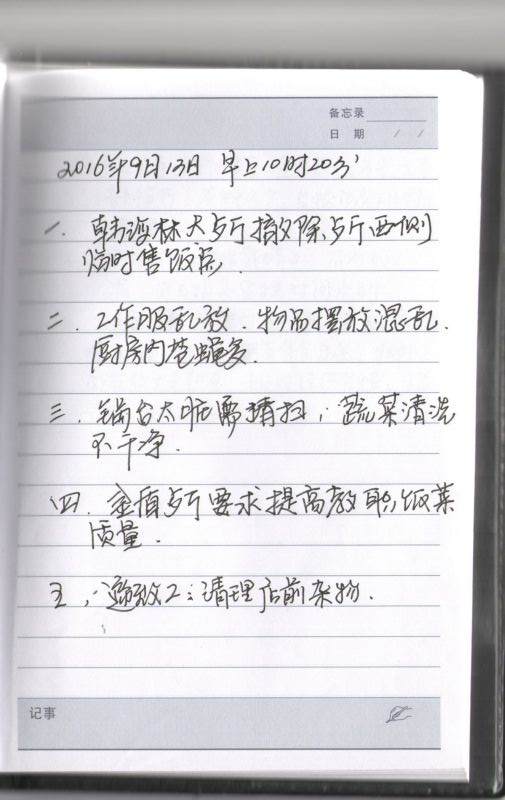 备忘录
日 期 / /
2016年9月13日 早上10时20分
一. 韩海林大歺厅撤除歺厅西侧
临时售饭点.
二. 工作服乱放. 物品摆放混乱.
厨房内苍蝇多.
三. 锅台太脏需清扫, 蔬菜清洗
不干净.
四. 金盾歺厅要求提高教职饭菜
质量.
五, 2:清理店前杂物.
记事